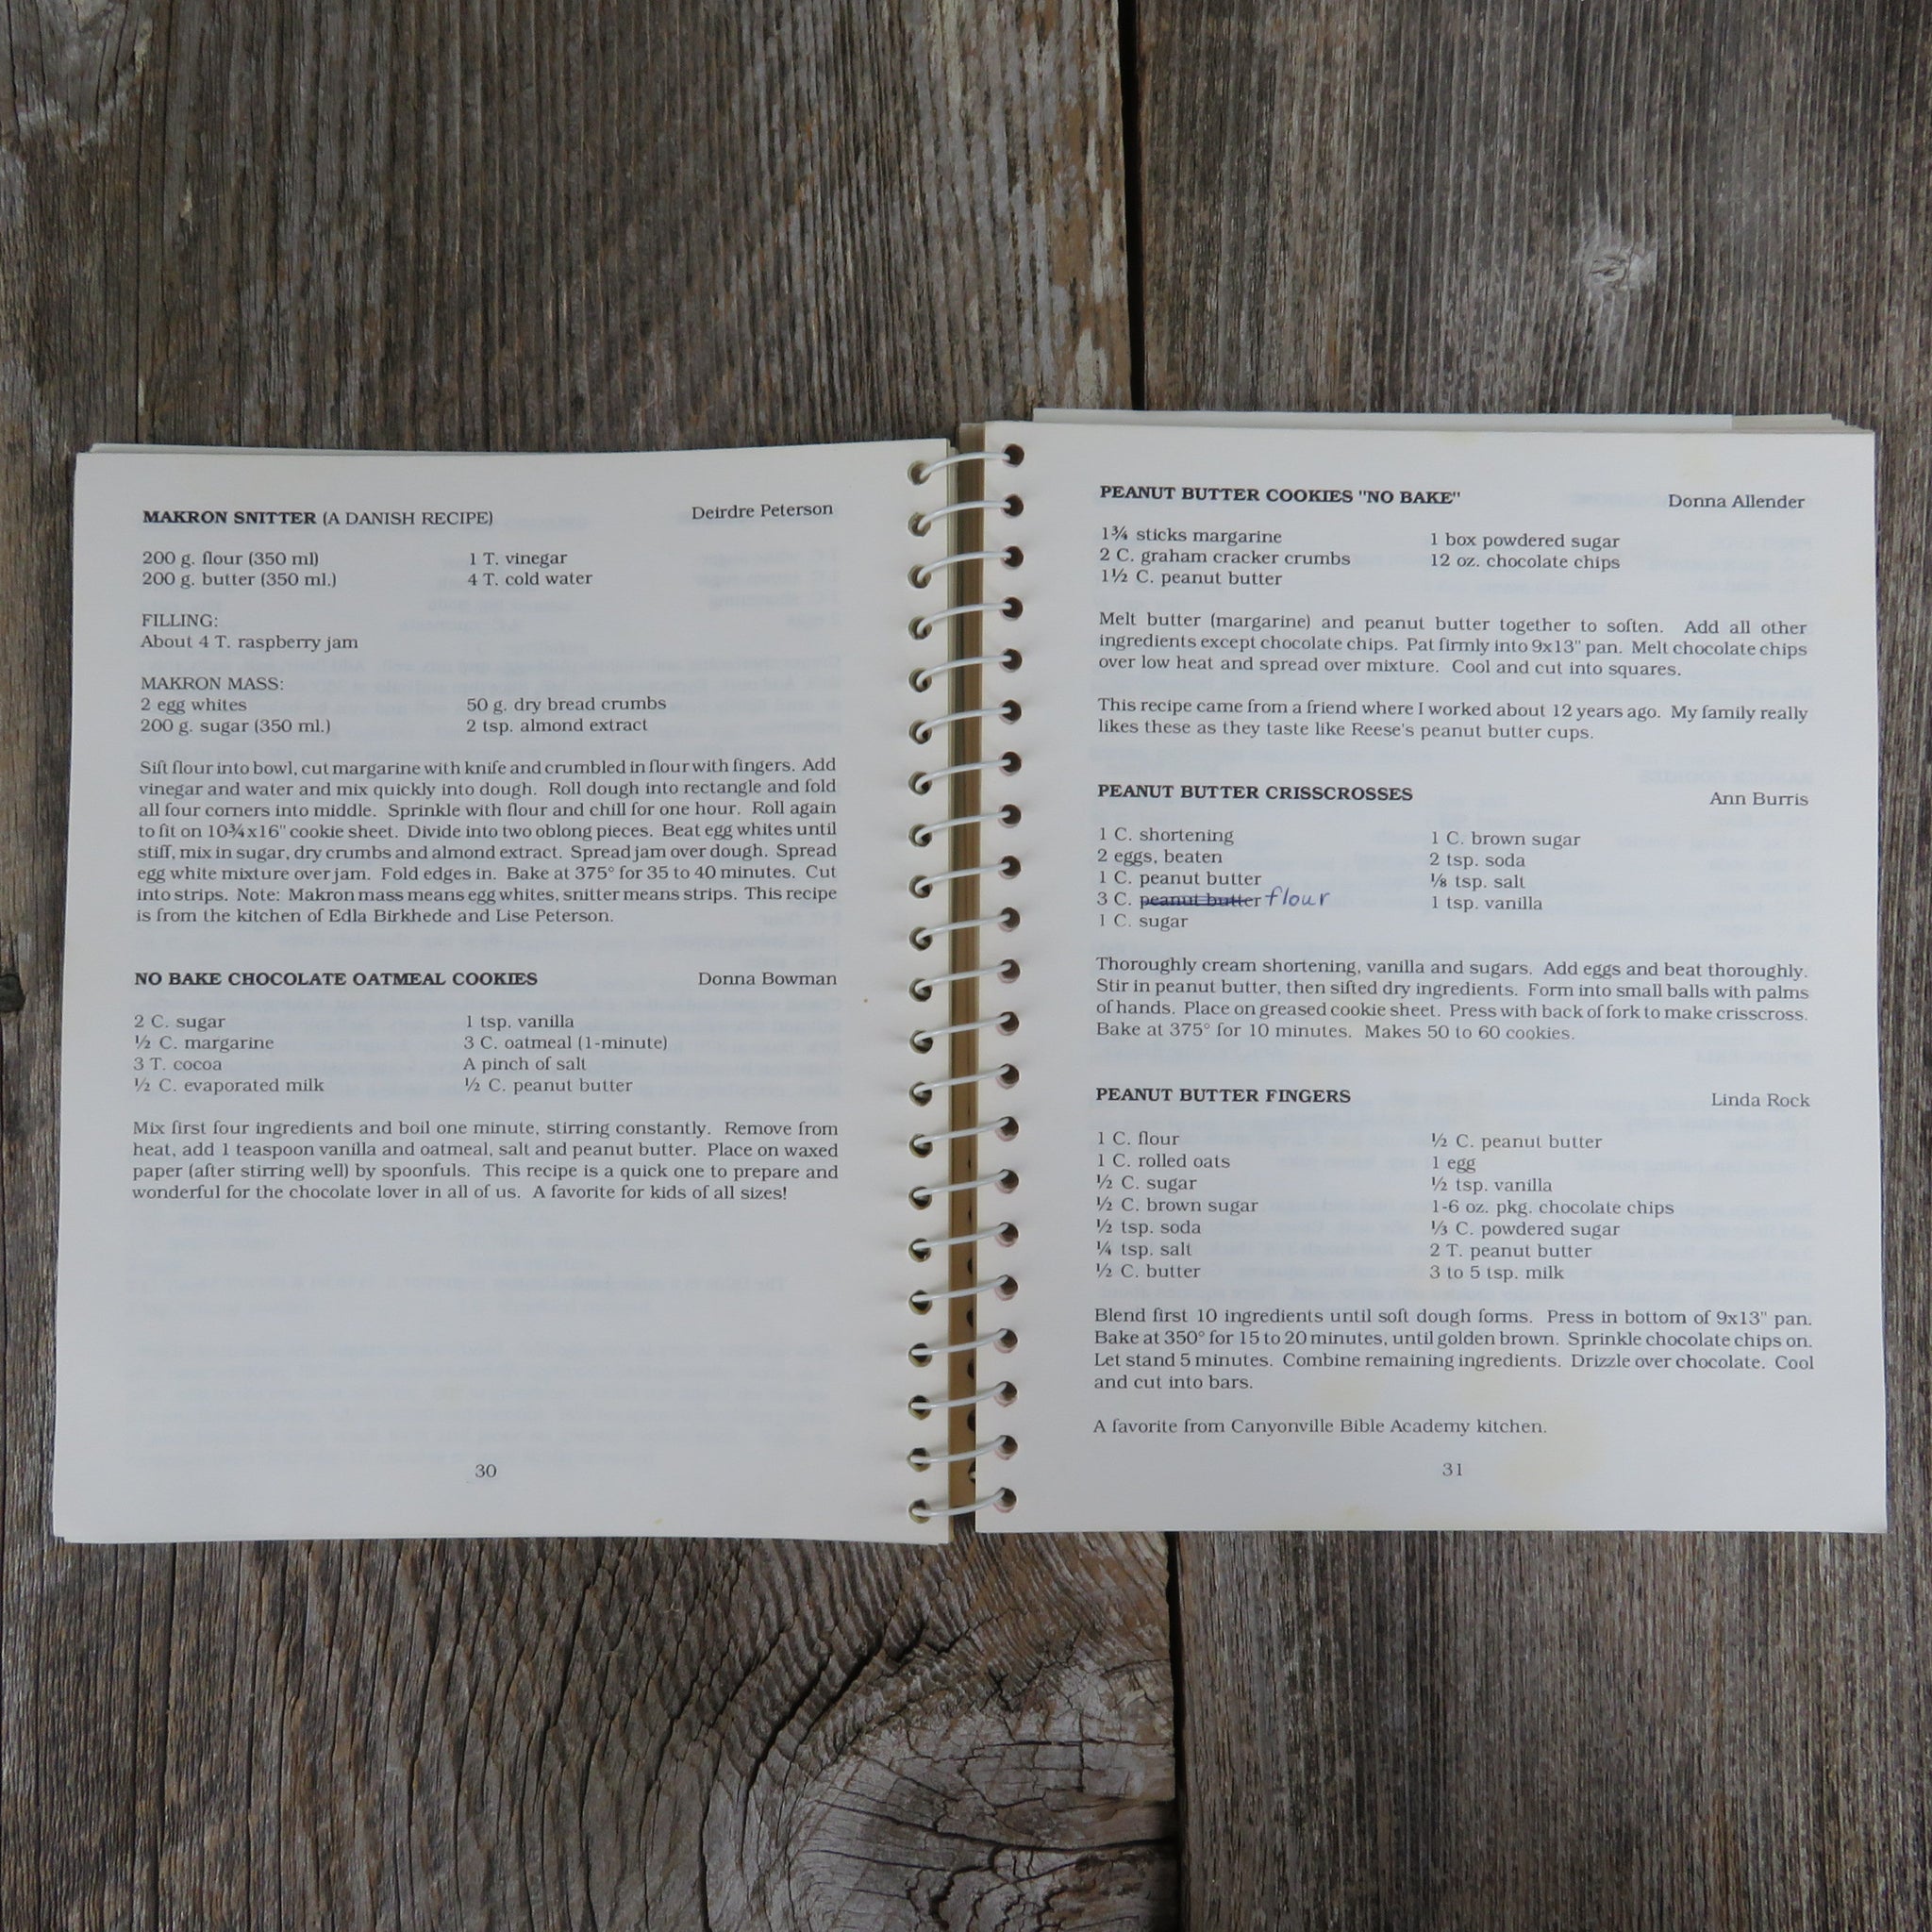 MAKRON SNITTER (A DANISH RECIPE) Deirdre Peterson
200 g. flour (350 ml) 1 T. vinegar
200 g. butter (350 ml.) 4 T. cold water
FILLING:
About 4 T. raspberry jam
MAKRON MASS:
2 egg whites 50 g. dry bread crumbs
200 g. sugar (350 ml.) 2 tsp. almond extract
Sift flour into bowl, cut margarine with knife and crumbled in flour with fingers. Add
vinegar and water and mix quickly into dough. Roll dough into rectangle and fold
all four corners into middle. Sprinkle with flour and chill for one hour. Roll again
to fit on 10¾x16" cookie sheet. Divide into two oblong pieces. Beat egg whites until
stiff, mix in sugar, dry crumbs and almond extract. Spread jam over dough. Spread
egg white mixture over jam. Fold edges in. Bake at 375° for 35 to 40 minutes. Cut
into strips. Note: Makron mass means egg whites, snitter means strips. This recipe
is from the kitchen of Edla Birkhede and Lise Peterson.
NO BAKE CHOCOLATE OATMEAL COOKIES Donna Bowman
2 C. sugar 1 tsp. vanilla
½ C. margarine 3 C. oatmeal (1-minute)
3 T. cocoa A pinch of salt
½ C. evaporated milk ½ C. peanut butter
Mix first four ingredients and boil one minute, stirring constantly. Remove from
heat, add 1 teaspoon vanilla and oatmeal, salt and peanut butter. Place on waxed
paper (after stirring well) by spoonfuls. This recipe is a quick one to prepare and
wonderful for the chocolate lover in all of us. A favorite for kids of all sizes!
30
PEANUT BUTTER COOKIES "NO BAKE" Donna Allender
1¾ sticks margarine 1 box powdered sugar
2 C. graham cracker crumbs 12 oz. chocolate chips
1½ C. peanut butter
Melt butter (margarine) and peanut butter together to soften. Add all other
ingredients except chocolate chips. Pat firmly into 9x13" pan. Melt chocolate chips
over low heat and spread over mixture. Cool and cut into squares.
This recipe came from a friend where I worked about 12 years ago. My family really
likes these as they taste like Reese's peanut butter cups.
PEANUT BUTTER CRISSCROSSES Ann Burris
1 C. shortening 1 C. brown sugar
2 eggs, beaten 2 tsp. soda
1 C. peanut butter ⅛ tsp. salt
3 C. peanut butter flour 1 tsp. vanilla
1 C. sugar
Thoroughly cream shortening, vanilla and sugars. Add eggs and beat thoroughly.
Stir in peanut butter, then sifted dry ingredients. Form into small balls with palms
of hands. Place on greased cookie sheet. Press with back of fork to make crisscross.
Bake at 375° for 10 minutes. Makes 50 to 60 cookies.
PEANUT BUTTER FINGERS Linda Rock
1 C. flour ½ C. peanut butter
1 C. rolled oats 1 egg
½ C. sugar ½ tsp. vanilla
½ C. brown sugar 1-6 oz. pkg. chocolate chips
½ tsp. soda ⅓ C. powdered sugar
¼ tsp. salt 2 T. peanut butter
½ C. butter 3 to 5 tsp. milk
Blend first 10 ingredients until soft dough forms. Press in bottom of 9x13" pan.
Bake at 350° for 15 to 20 minutes, until golden brown. Sprinkle chocolate chips on.
Let stand 5 minutes. Combine remaining ingredients. Drizzle over chocolate. Cool
and cut into bars.
A favorite from Canyonville Bible Academy kitchen.
31